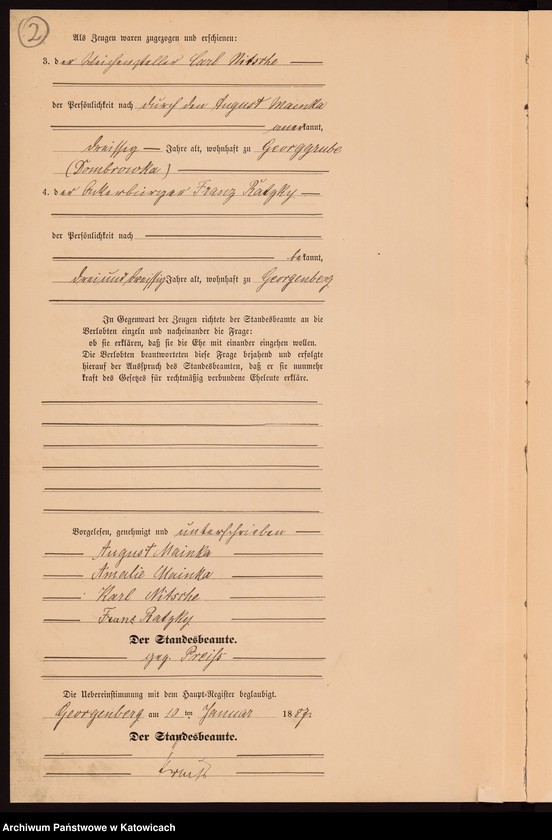 2
Als Zeugen waren zugezogen und erschienen:
3. der Weichensteller Carl Nitsche
der Persönlichkeit nach durch den August Mainka
anerkannt,
dreissig Jahre alt, wohnhaft zu Georggrube
(Dombrowka)
4. der Ackerbürger Franz Ratzky
der Persönlichkeit nach
bekannt,
dreiunddreissig Jahre alt, wohnhaft zu Georgenberg
In Gegenwart der Zeugen richtete der Standesbeamte an die
Verlobten einzeln und nacheinander die Frage:
ob sie erklären, daß sie die Ehe mit einander eingehen wollen.
Die Verlobten beantworteten diese Frage bejahend und erfolgte
hierauf der Ausspruch des Standesbeamten, daß er sie nunmehr
kraft des Gesetzes für rechtmäßig verbundene Eheleute erkläre.
Vorgelesen, genehmigt und unterschrieben
August Mainka
Amalie Mainka
Karl Nitsche
Franz Ratzky
Der Standesbeamte.
gez. Preiß
Die Uebereinstimmung mit dem Haupt-Register beglaubigt.
Georgenberg am 10 ten Januar 1887.
Der Standesbeamte.
Archiwum Państwowe w Katowicach